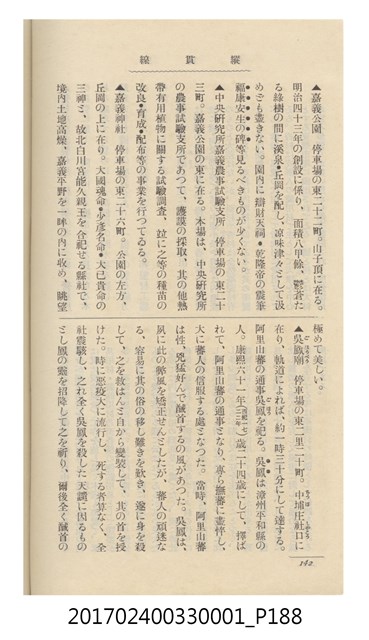 縱貫線
▲嘉義公園　停車場の東二十二町。山子頂に在る。
明治四十三年の創設に係り、面積八甲餘、鬱蒼た
る綠樹の間に溪泉・丘岡を配し、凉味津々として汲
めども盡きない。園內に辯財天祠・乾隆帝の宸筆
福康安生の碑等見るべきものが少くない。
▲中央硏究所嘉義農事試驗支所　停車場の東二十
三町。嘉義公園の東に在る。本場は、中央硏究所
の農事試驗支所であつて、護謨の採取、其の他熱
帶有用植物に關する試驗調査、竝に之等の種苗の
改良・育成・配布等の事業を行つてゐる。
▲嘉義神社　停車場の東二十六町。公園の左方、
丘岡の上に在り。大國魂命・少彥名命・大己貴命の
三神と、故北白川宮能久親王を合祀せる縣社で、
境內土地高燥、嘉義平野を一眸の內に收め、眺望
極めて美しい。
▲吳鳳廟　停車場の東二里二十町。中埔庄社口に
在り、軌道によれば、約一時三十分にして達する。
阿里山蕃の通事吳鳳を祀る。吳鳳は漳州平和縣の
人。康熙六十一年歲二十四歲にして、擇ば
れて、阿里山蕃の通事となり、專ら撫蕃に盡悴し、
大に蕃人の信服する處となつた。當時、阿里山蕃
は性、兇猛好んで馘首するの風があつた。吳鳳は、
夙に此の弊風を矯正せんとしたが、蕃人の頑迷な
る、容易に其の俗の移し難きを歎き、遂に身を殺
して、之を救はんと自から變裝して、其の首を授
けた。時に惡疫大に流行し、死する者算なく、全
社震駭し、之れ全く吳鳳を殺した天譴に因るもの
とし鳳の靈を招降して之を祈り、爾後全く馘首の
142
201702400330001_P188